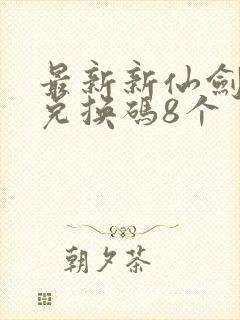 最新新仙劍
兌換碼8个
朝夕茶